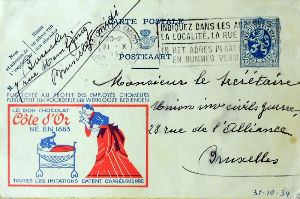 CARTE POSTALE
POSTKAART
INDIQUEZ DANS LES
LA LOCALITÉ, LA RUE
IN HET ADRES
EN NUMMER
Monsieur le Secrétaire
Unions inv. civils guerre
28 rue de l'Alliance
Bruxelles
PUBLICITÉ AU PROFIT DES EMPLOYÉS CHOMEURS
PUBLICITEIT TEN VOORDEELE DER WERKLOOZE BEDIENDEN
LE BON CHOCOLAT
Côte d'Or
NÉ EN 1883
TOUTES LES IMITATIONS DATENT D'APRÈS GUERRE
31-10-34